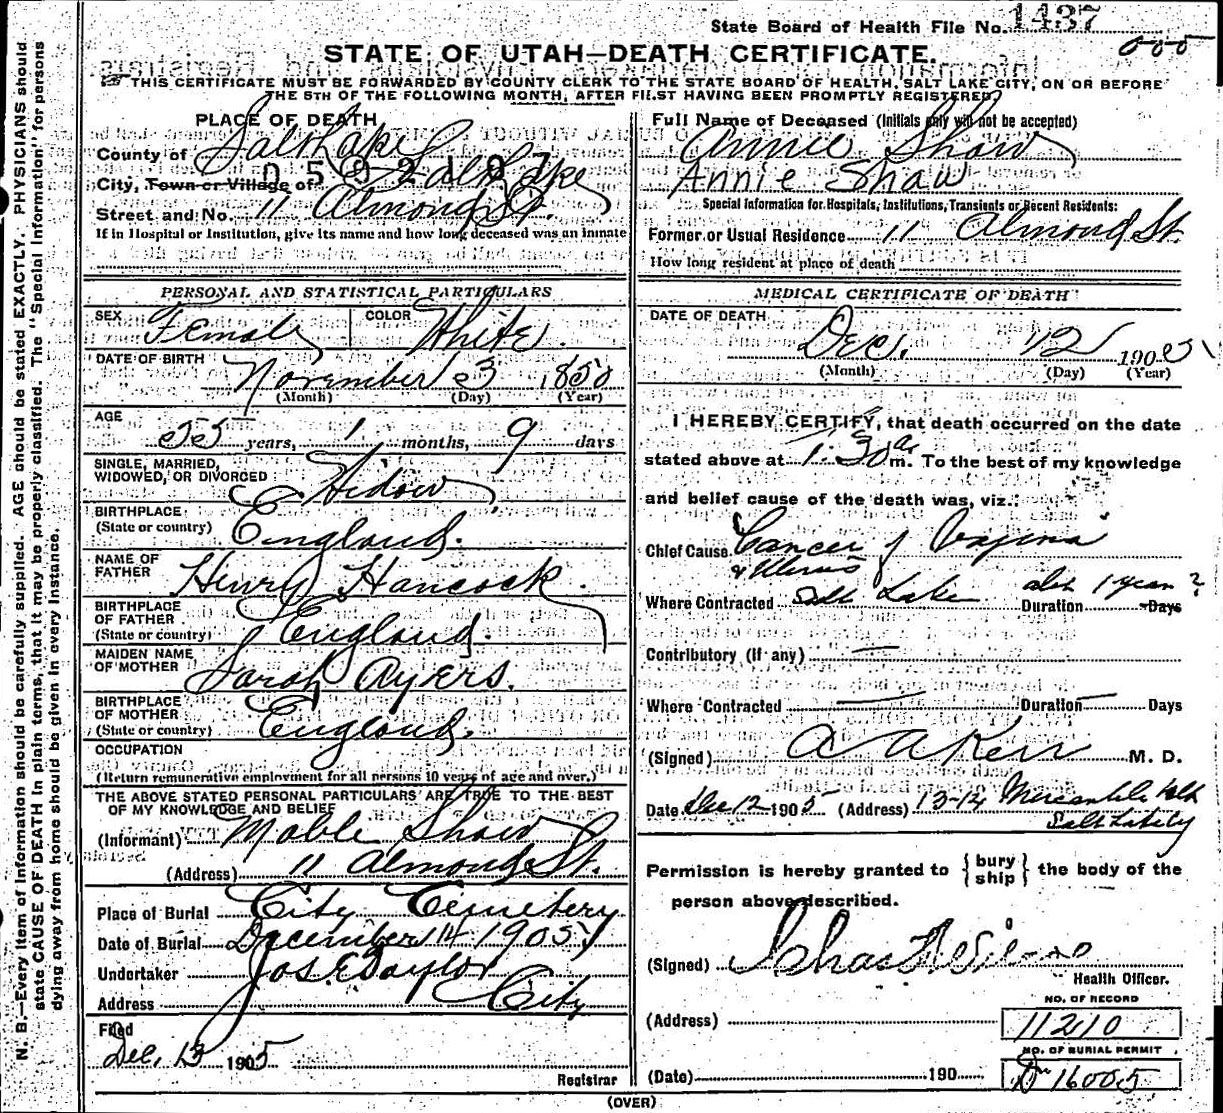 State Board of Health File No. 1437
000
STATE OF UTAH—DEATH CERTIFICATE.
THIS CERTIFICATE MUST BE FORWARDED BY COUNTY CLERK TO THE STATE BOARD OF HEALTH, SALT LAKE CITY, ON OR BEFORE
THE 5TH OF THE FOLLOWING MONTH, AFTER FIRST HAVING BEEN PROMPTLY REGISTERED.
N. B.—Every item of information should be carefully supplied. AGE should be stated EXACTLY. PHYSICIANS should
state CAUSE OF DEATH in plain terms, that it may be properly classified. The "Special Information" for persons
dying away from home should be given in every instance.
PLACE OF DEATH
County of Salt Lake
City, Town or Village of Salt Lake
0582107
Street and No. 11 Almond St.
If in Hospital or Institution, give its name and how long deceased was an inmate
PERSONAL AND STATISTICAL PARTICULARS
SEX Female COLOR White.
DATE OF BIRTH November 3 1850
(Month) (Day) (Year)
AGE 55 years, 1 months, 9 days
SINGLE, MARRIED,
WIDOWED, OR DIVORCED Widow
BIRTHPLACE
(State or country) England.
NAME OF
FATHER Henry Hancock.
BIRTHPLACE
OF FATHER
(State or country) England.
MAIDEN NAME
OF MOTHER Sarah Ayers.
BIRTHPLACE
OF MOTHER
(State or country) England.
OCCUPATION
(Return remunerative employment for all persons 10 years of age and over.)
THE ABOVE STATED PERSONAL PARTICULARS ARE TRUE TO THE BEST
OF MY KNOWLEDGE AND BELIEF
(Informant) Mable Shaw
(Address) 11 Almond St.
Place of Burial City Cemetery
Date of Burial December 14 1905
Undertaker Jos. E Taylor
Address City
Filed
Dec. 13 1905
Registrar
Full Name of Deceased (Initials only will not be accepted)
Annie Shaw
Annie Shaw
Special Information for Hospitals, Institutions, Transients or Recent Residents:
Former or Usual Residence 11 Almond St.
How long resident at place of death
MEDICAL CERTIFICATE OF DEATH
DATE OF DEATH
Dec. 12 1905
(Month) (Day) (Year)
I HEREBY CERTIFY, that death occurred on the date
stated above at 1.30 a m. To the best of my knowledge
and belief cause of the death was, viz.:
Chief Cause Cancer of Vagina
& Uterus
Where Contracted Salt Lake Duration abt 1 year ? Days
Contributory (if any) —
Where Contracted — Duration — Days
(Signed) A A Kerr M. D.
Date Dec 12 1905 (Address) 13-14 Mercantile Blk
Salt Lake City
Permission is hereby granted to { bury ship } the body of the
person above described.
(Signed) Chas
Health Officer.
NO. OF RECORD
(Address) 11210
NO. OF BURIAL PERMIT
(Date) 190 16005
(OVER)